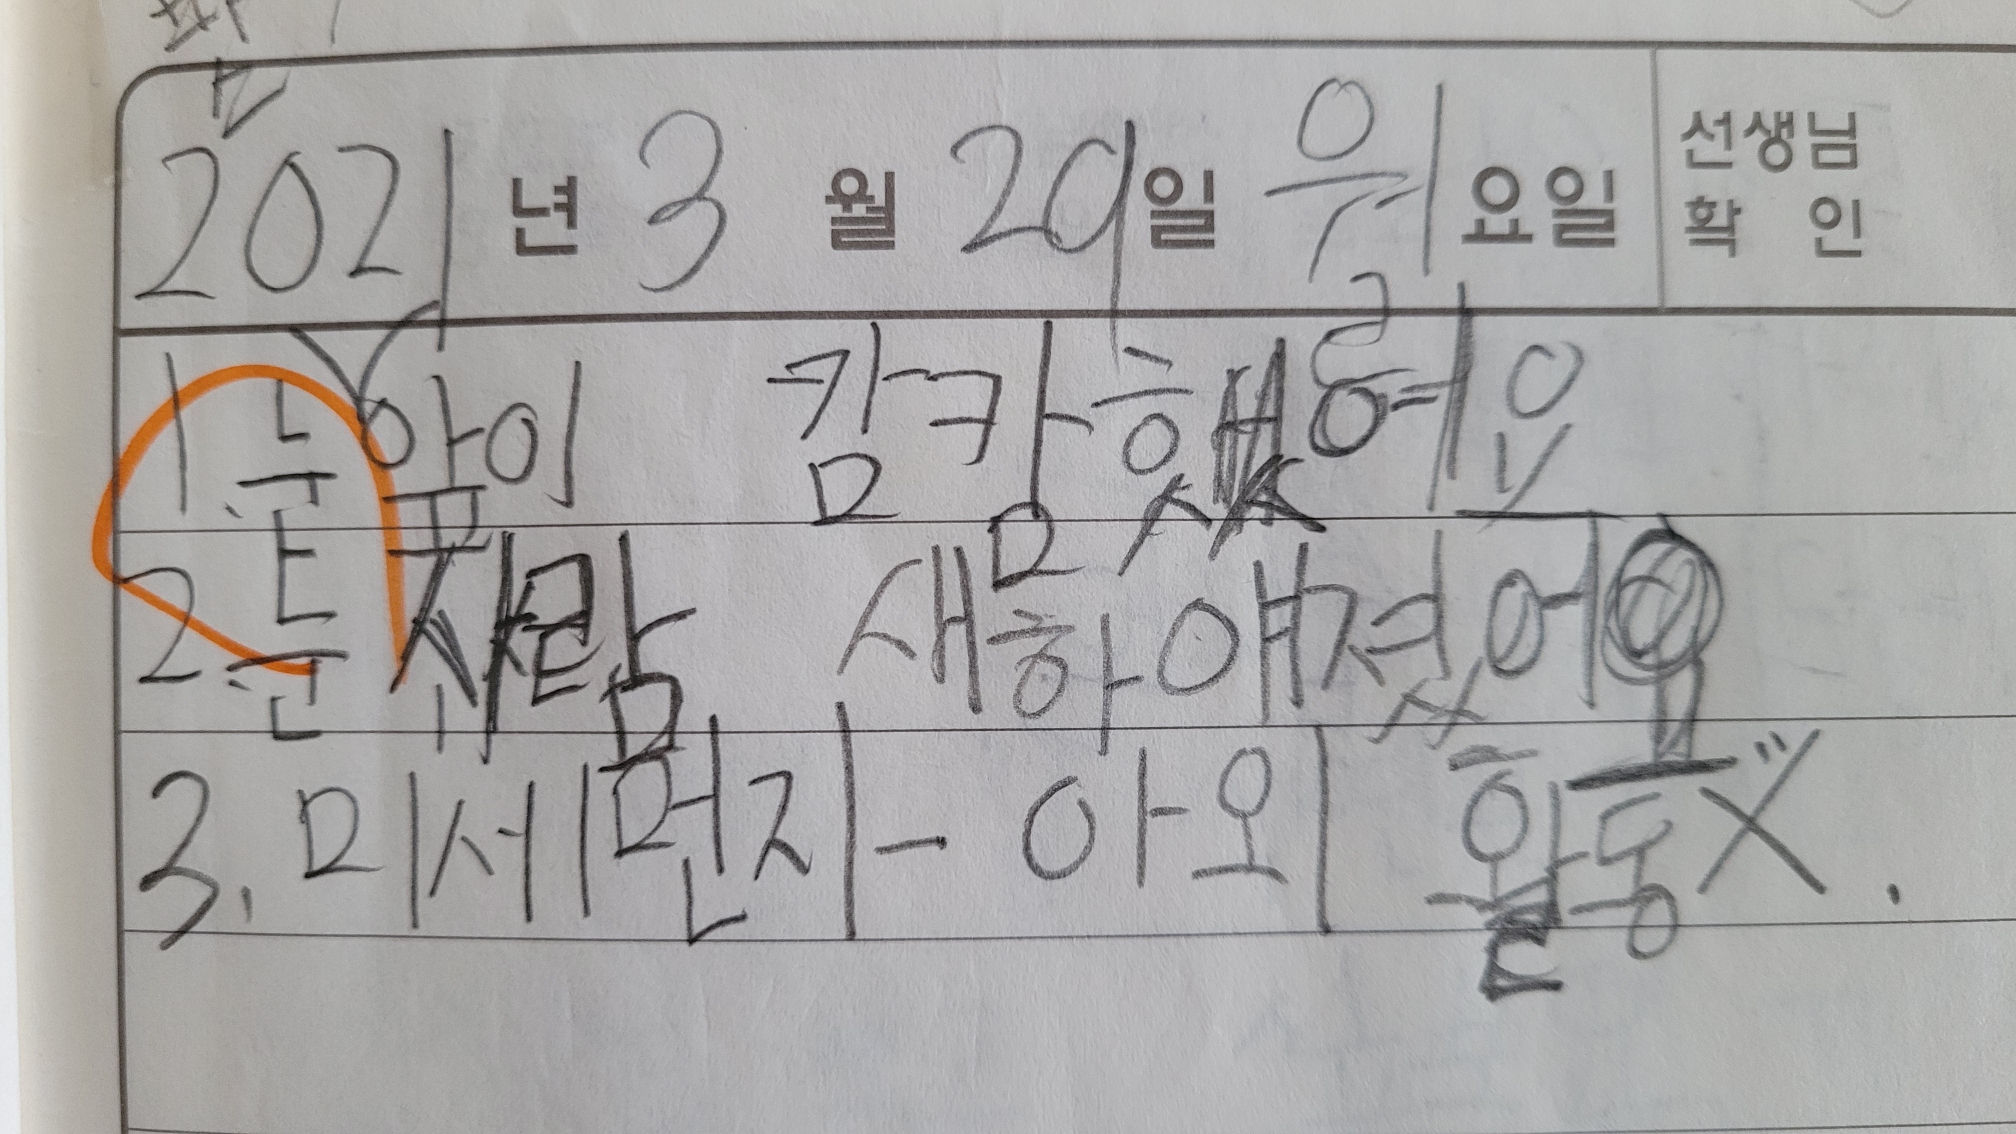 2021년 3월 29일 월요일 선생님
확 인
1 눈 앞이 캄캄
2 새하얘졌어요
3. 미세먼지 - 아외 활동 X.